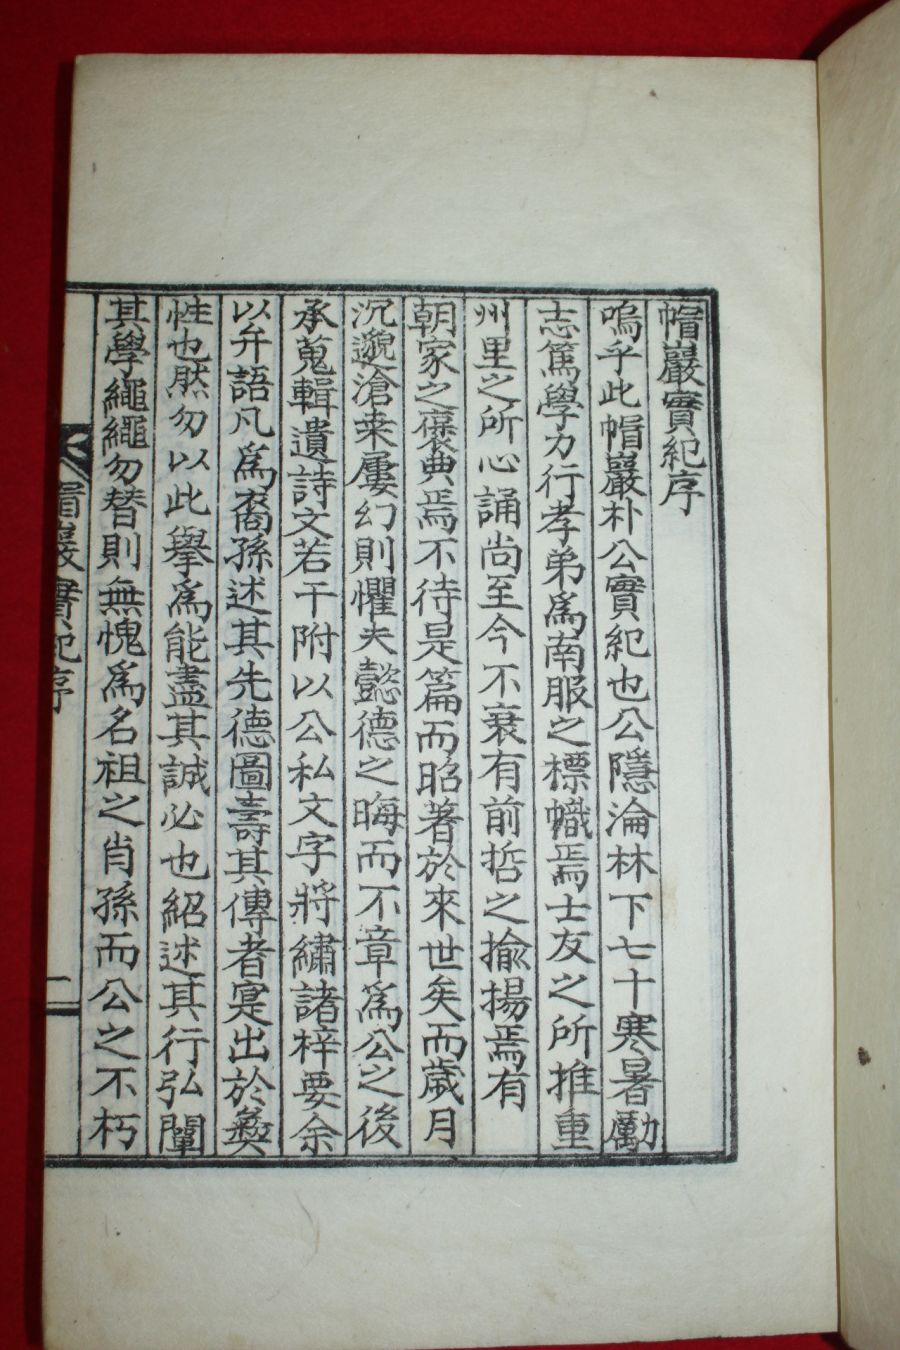 帽巖實紀序
嗚乎此帽巖朴公實紀也公隱淪林下七十寒暑勵
志篤學力行孝弟爲南服之標幟焉士友之所推重
州里之所心誦尚至今不衰有前哲之揄揚焉有
朝家之褒典焉不待是篇而昭著於來世矣而歲月
沉邈滄桒屢幻則懼夫懿德之晦而不章爲公之後
承蒐輯遺詩文若干附以公私文字將繡諸梓要余
以弁語凡爲裔孫述其先德圖壽其傳者寔出於彜
性也然勿以此擧爲能盡其誠必也紹述其行弘闡
其學繩繩勿替則無愧爲名祖之肖孫而公之不朽
帽巖實紀序
二